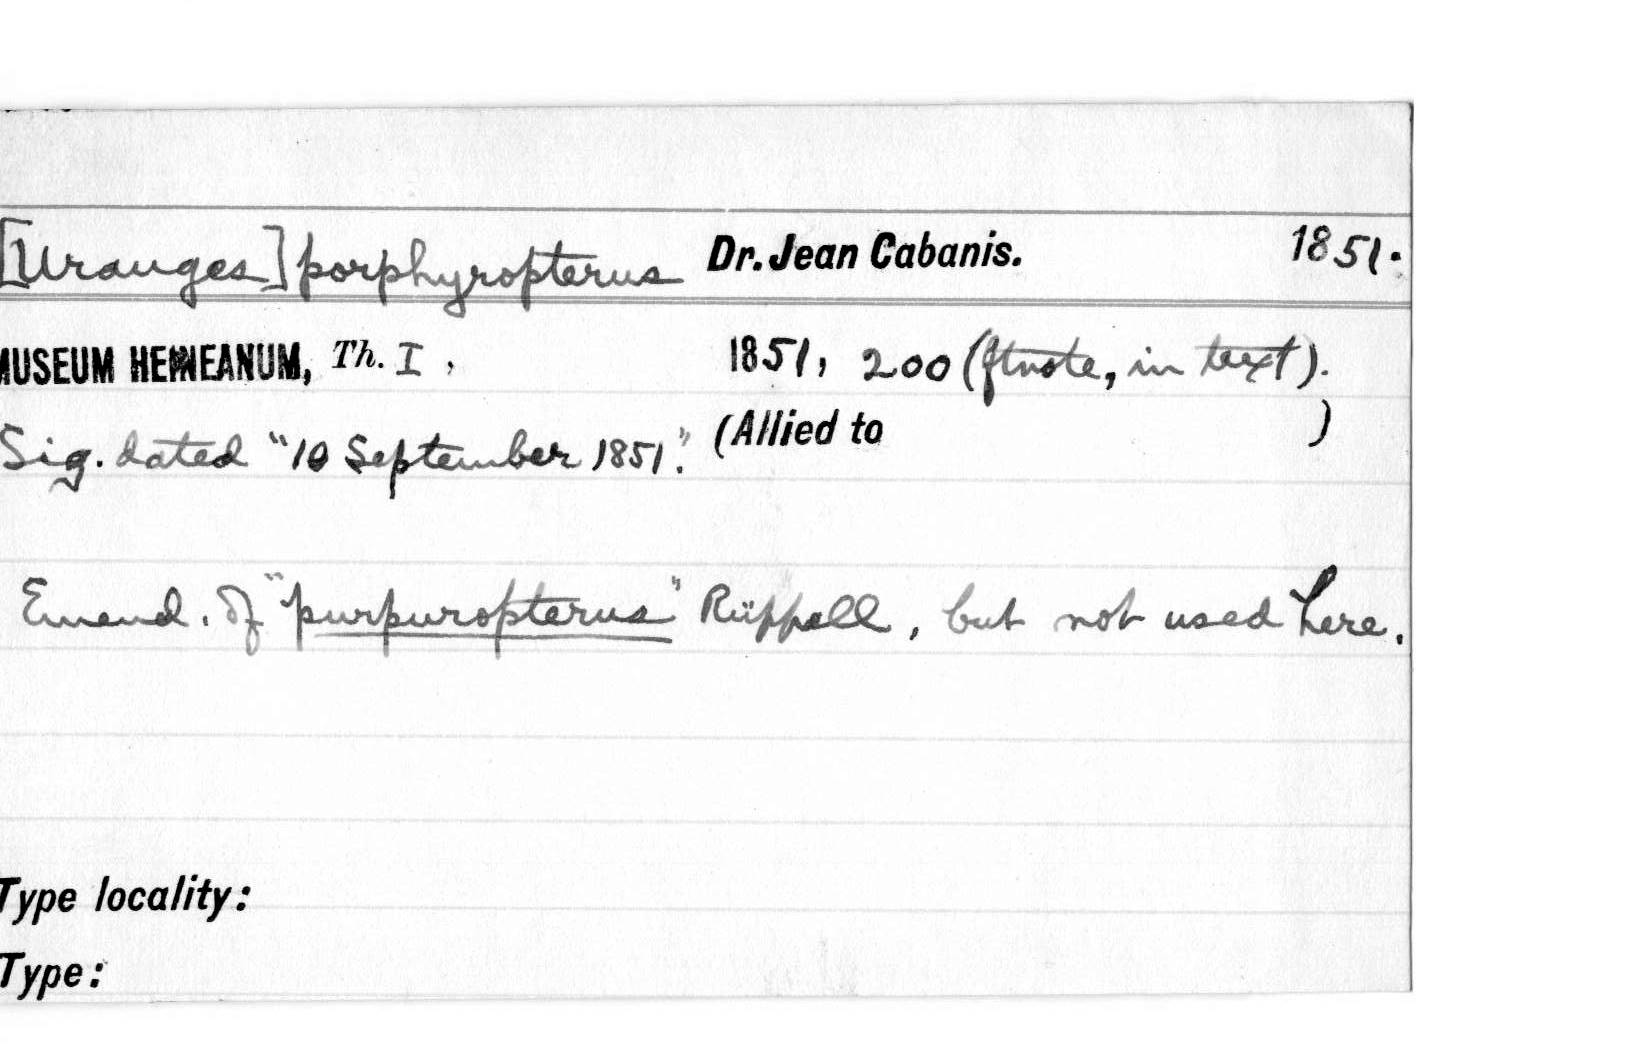 [Urauges] porphyropterus Dr. Jean Cabanis. 1851.
MUSEUM HEINEANUM, Th. I, 1851, 200 (ftnote, in text).
Sig. dated "10 September 1851." (Allied to )
Emend. of "purpuropterus" Rüppell, but not used here.
Type locality:
Type: